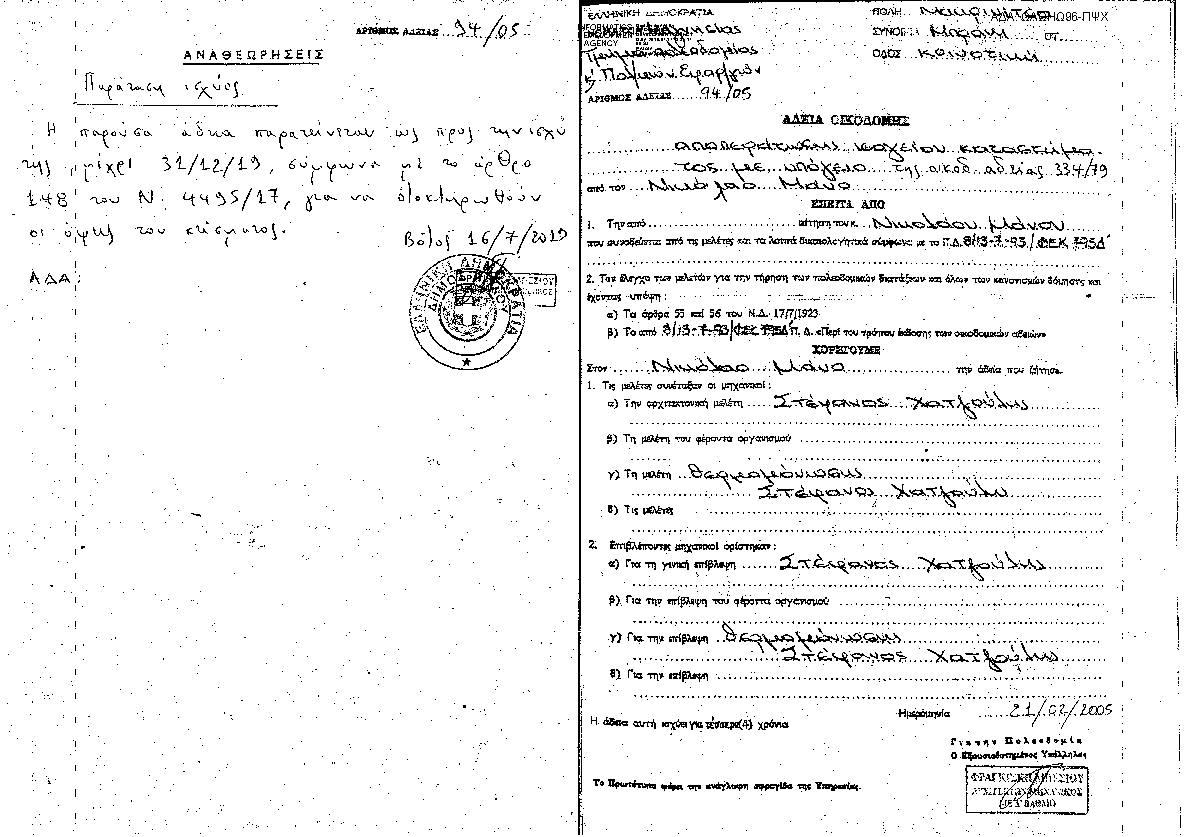 ΑΡΙΘΜΟΣ ΑΔΕΙΑΣ 94/05
ΑΝΑΘΕΩΡΗΣΕΙΣ
Παράταση ισχύος
Η παρούσα άδεια παρατείνεται ως προς την ισχύ
της μέχρι 31/12/19, σύμφωνα με το άρθρο
148 του Ν. 4495/17, για να ολοκληρωθούν
οι όψεις του κτίσματος.
Βόλος 16/7/2019
ΑΔΑ:
ΕΛΛΗΝΙΚΗ ΔΗΜΟΚΡΑΤΙΑ
ΕΛΛΗΝΙΚΗ ΔΗΜΟΚΡΑΤΙΑ
INFORMATICS
AGENCY
Τμήμα Πολεοδομίας
ΑΡΙΘΜΟΣ ΑΔΕΙΑΣ 94/05
ΠΟΛΗ
ΣΥΝΟΙΚ. ΟΤ
ΟΔΟΣ Κοινοτική
ΑΔΕΙΑ ΟΙΚΟΔΟΜΗΣ
αποπεράτωσης ισογείου καταστήμα-
τος με υπόγειο της οικοδ. αδείας 334/79
από τον Νικόλαο Μάνο
ΕΠΕΙΤΑ ΑΠΟ
1. Την από αίτηση του κ. Νικολάου Μάνου
που συνοδεύεται από τις μελέτες και τα λοιπά δικαιολογητικά σύμφωνα με το Π.Δ. 8/13-7-93/ΦΕΚ 795Δ'
2. Τον έλεγχο των μελετών για την τήρηση των πολεοδομικών διατάξεων και όλων των κανονισμών δόμησης και
έχοντας υπόψη :
α) Τα άρθρα 55 και 56 του Ν.Δ. 17/7/1923
β) Το από 8/13-7-93/ΦΕΚ 795Δ Π. Δ. «Περί του τρόπου έκδοσης των οικοδομικών αδειών»
ΧΟΡΗΓΟΥΜΕ
Στον Νικόλαο Μάνο την άδεια που ζήτησε.
1. Τις μελέτες συνέταξαν οι μηχανικοί :
α) Την αρχιτεκτονική μελέτη Στέφανος Χατζούλης
β) Τη μελέτη του φέροντα οργανισμού
γ) Τη μελέτη θερμομόνωσης
Στέφανος Χατζούλης
δ) Τις μελέτες
2. Επιβλέποντες μηχανικοί ορίστηκαν :
α) Για τη γενική επίβλεψη Στέφανος Χατζούλης
β) Για την επίβλεψη του φέροντα οργανισμού
γ) Για την επίβλεψη θερμομόνωσης
Στέφανος Χατζούλης
δ) Για την επίβλεψη
Ημερομηνία 21/02/2005
Η άδεια αυτή ισχύει για τέσσερα (4) χρόνια
Για την Πολεοδομία
Ο Εξουσιοδοτημένος Υπάλληλος
Το Πρωτότυπο φέρει την ανάγλυφη σφραγίδα της Υπηρεσίας.